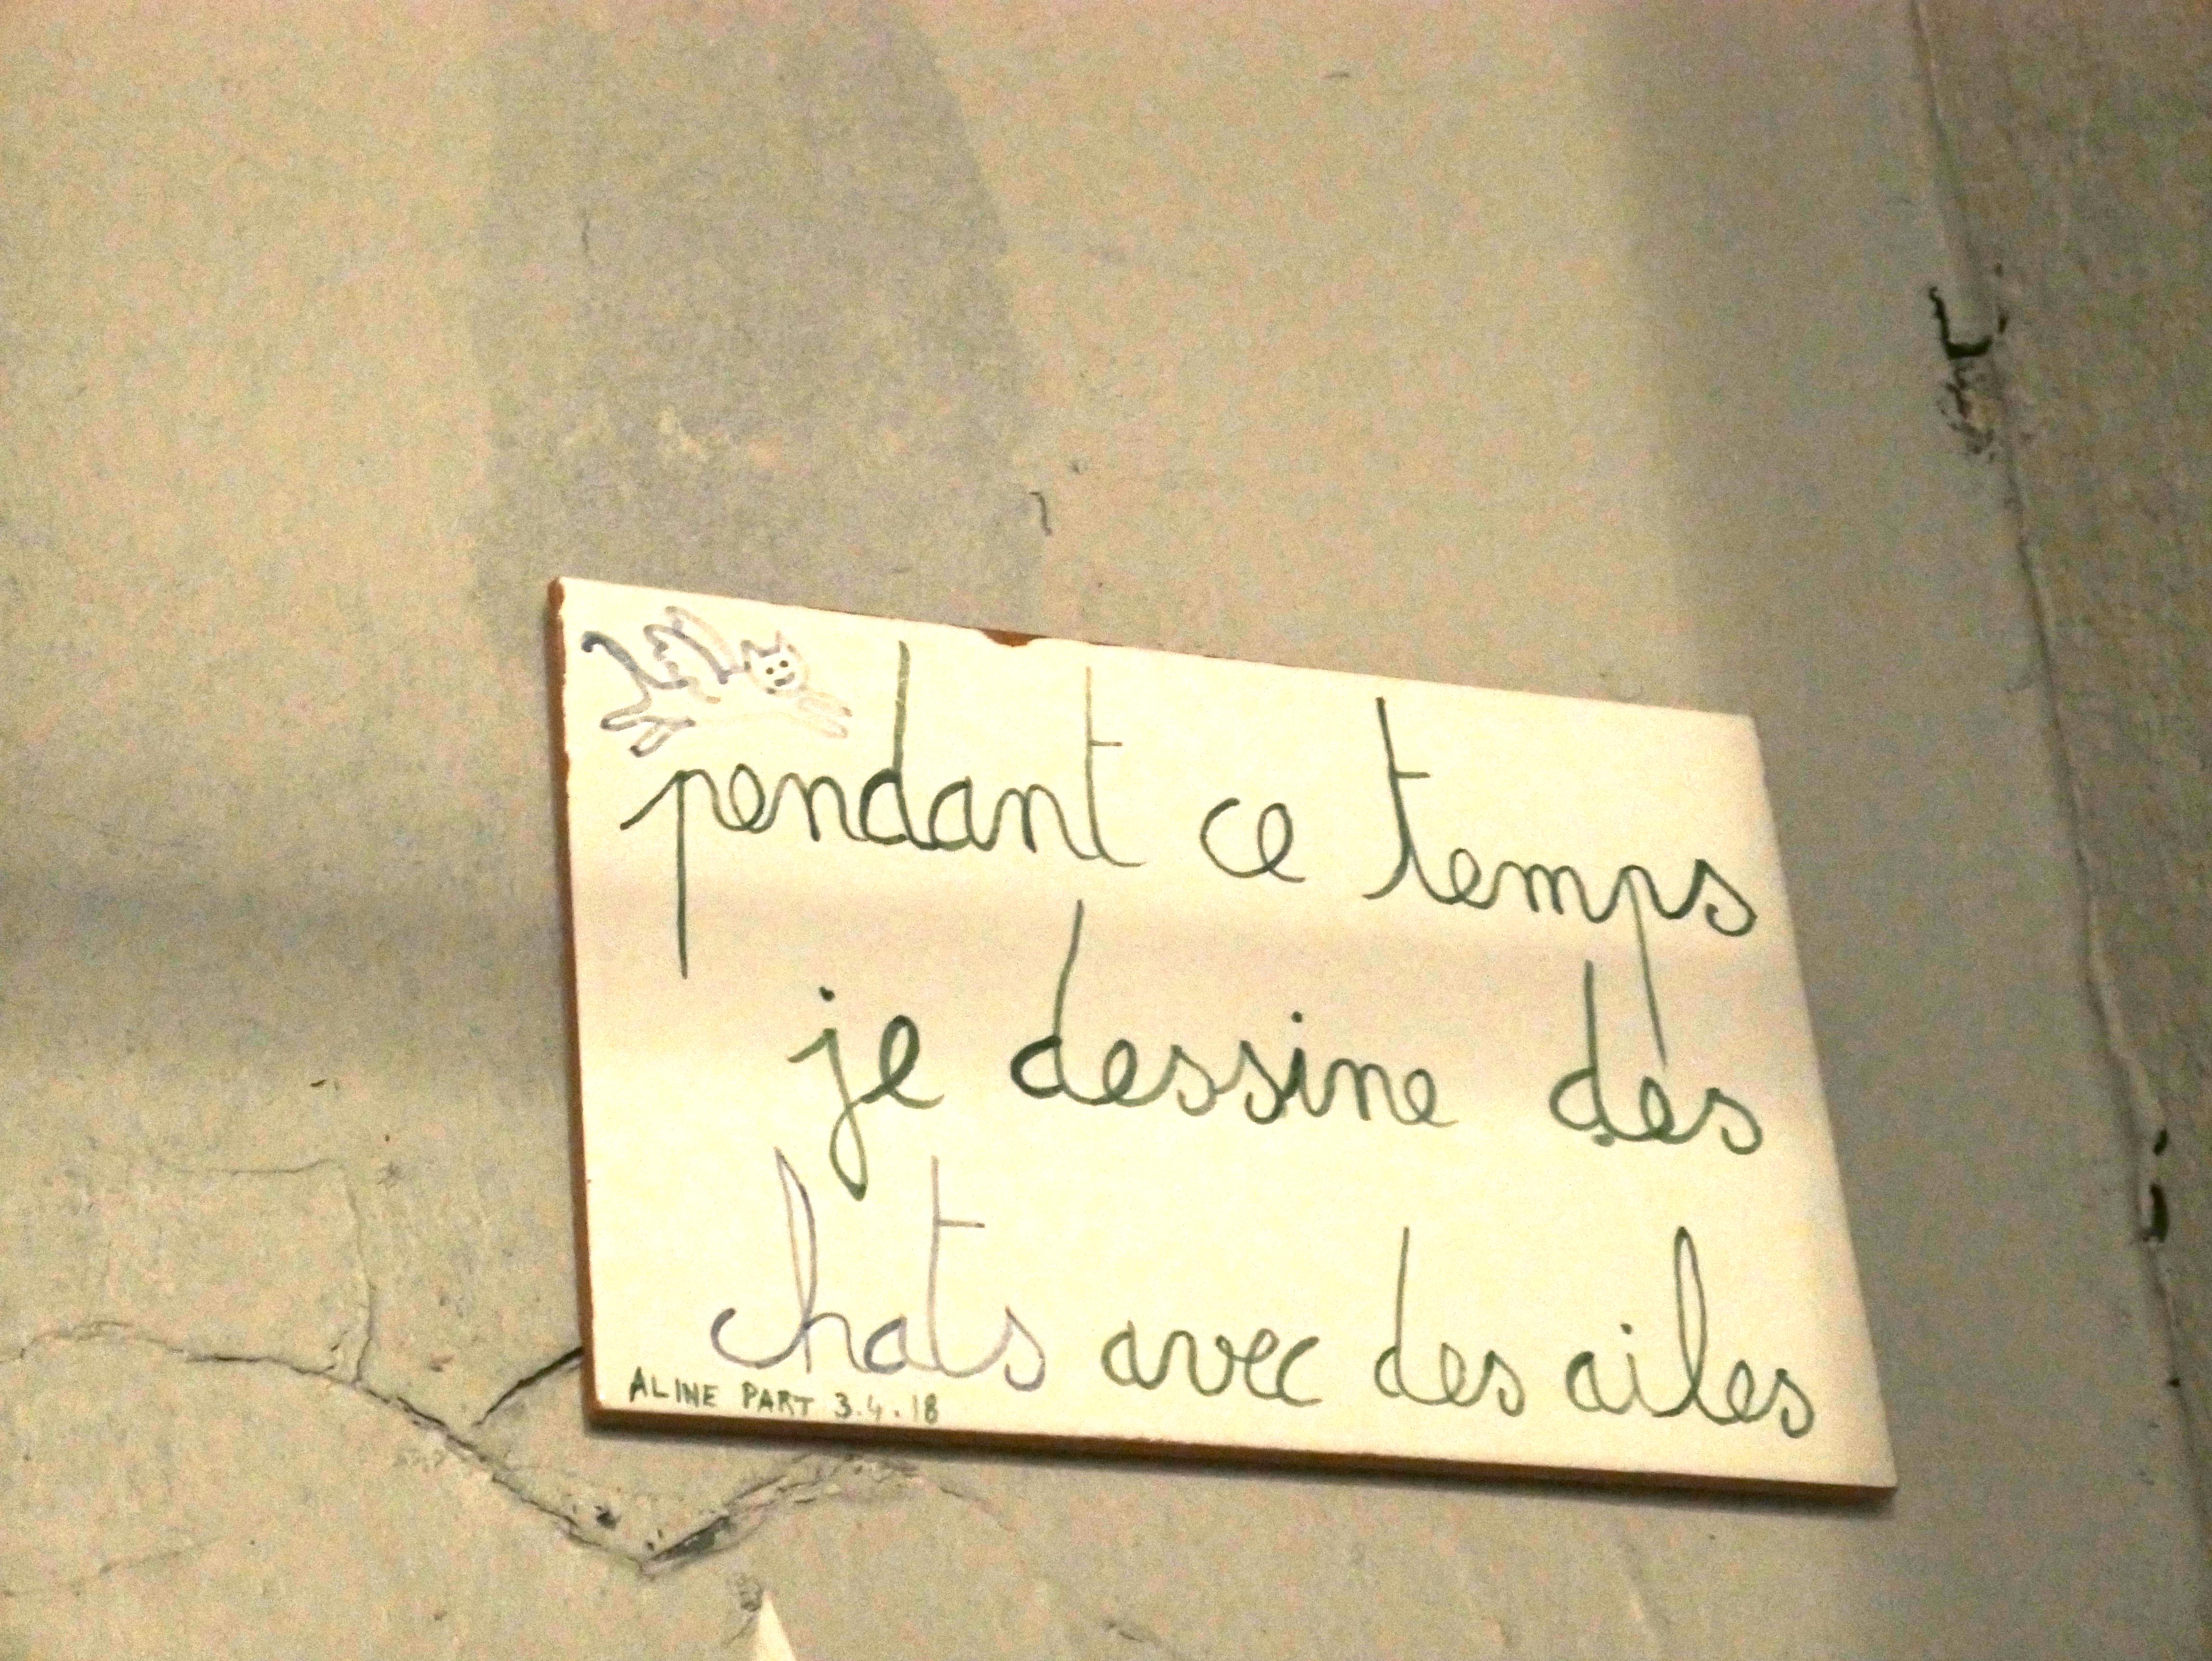 pendant ce temps
je dessine des
chats avec des ailes
ALINE PART 3.4.18